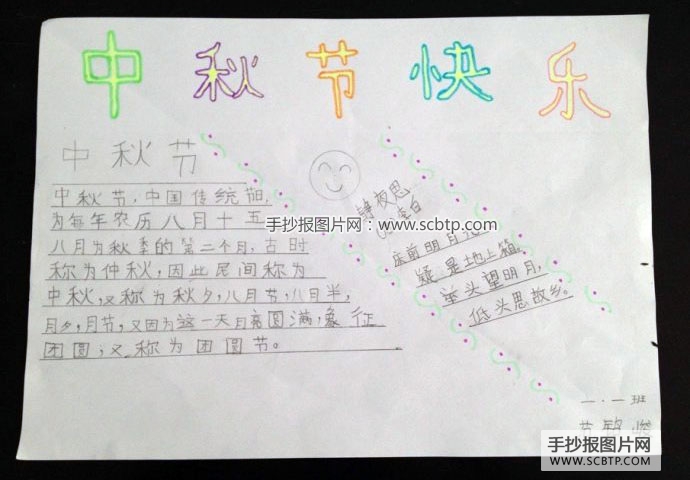 中秋节快乐
中秋节
中秋节，中国传统节日，
为每年农历八月十五
八月为秋季的第二个月，古时
称为仲秋，因此民间称为
中秋，又称为秋夕，八月节，八月半，
月夕，月节，又因为这一天月亮圆满，象征
团圆，又称为团圆节。
静夜思
李白
床前明月光
疑是地上霜。
举头望明月，
低头思故乡。
手抄报图片网：www.scbtp.com
一·一班
手抄报图片网
WWW.SCBTP.COM